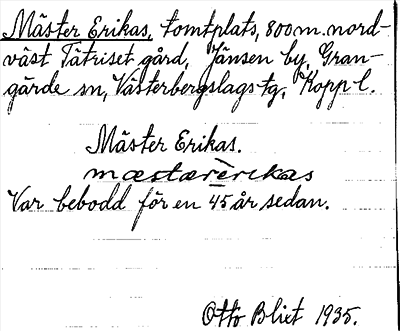 Mäster Erikas, tomtplats, 800 m. nord-
väst Täktriset gård, Jänsen by, Gran-
gärde sn, Västerbergslags tg, Koppl.
Mäster Erikas.
mæstærèrikas
Var bebodd för en 45 år sedan.
Otto Blixt 1935.